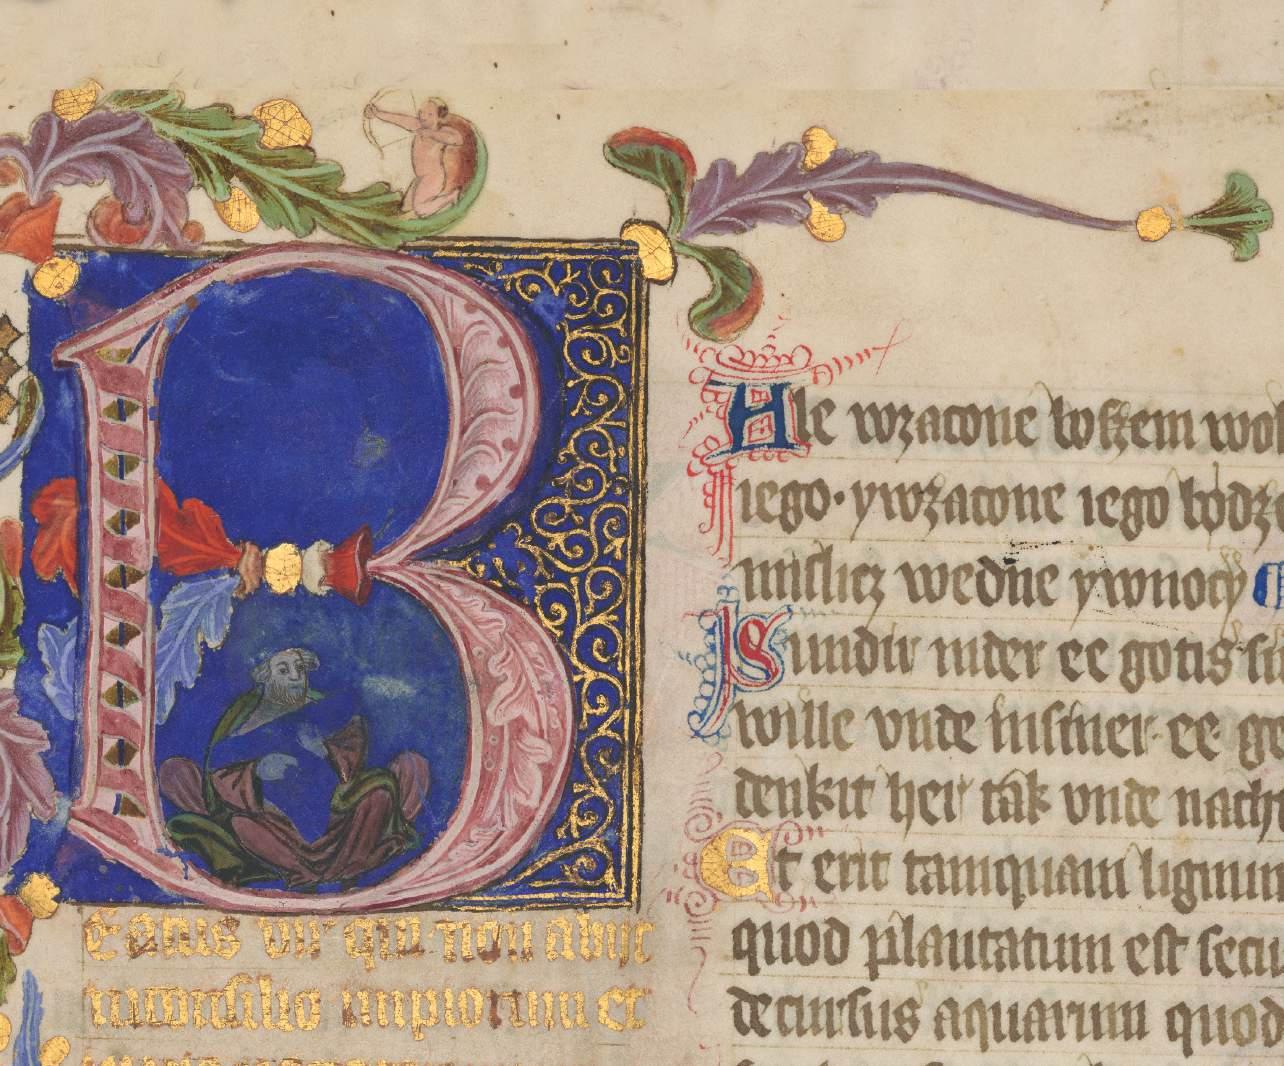 Beatus vir qui non abijt
in consilio impiorum et
Ale wzacone boszem wol
iego · ywzacone iego bodz
mislicz wedne ywnoczy ¶
Sundir inder ee gotis sin
wille vnde insiner ee ge
denkit her tak vnde nach
Et erit tamquam lignum
quod plantatum est secu
decursus aquarum quod